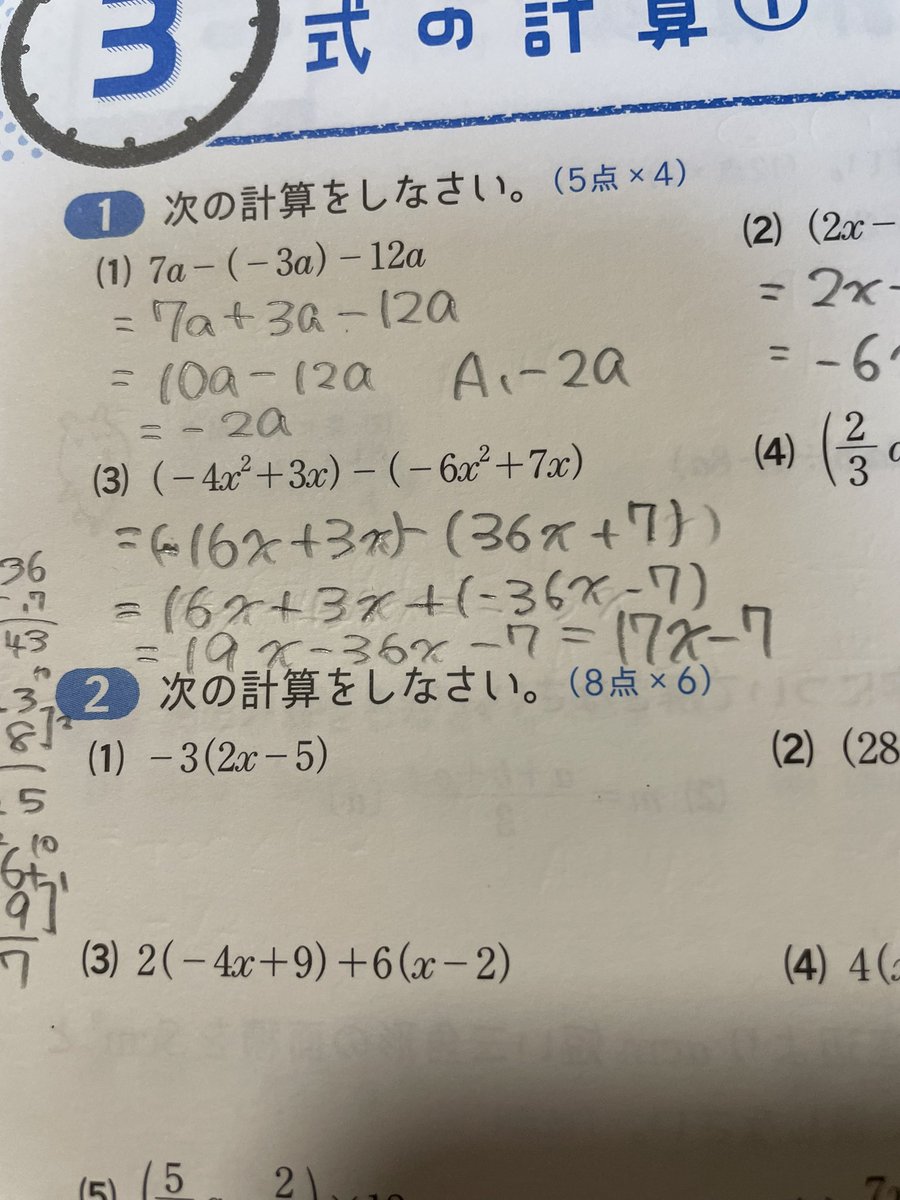 3 式の計算①
1 次の計算をしなさい。(5点×4)
(1) 7a-(-3a)-12a
= 7a+3a-12a
= 10a-12a A、-2a
= -2a
(2) (2x-
= 2x-
= -6
(3) (-4x²+3x)-(-6x²+7x)
=(-16x+3x)-(36x+7)
= 16x+3x+(-36x-7)
= 19x-36x-7=17x-7
(4) (2/3
36
43
2 次の計算をしなさい。(8点×6)
(1) -3(2x-5)
(2) (28
(3) 2(-4x+9)+6(x-2)
(4) 4(
(5) (5
2)